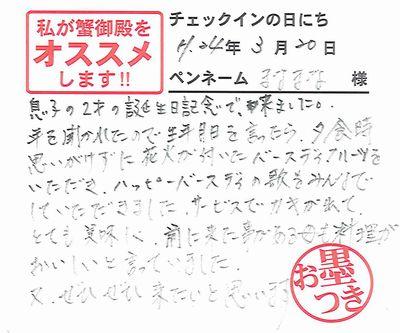 私が蟹御殿を
オススメ
します!!
チェックインの日にち
H.24年 3月20日
ペンネーム まなまな 様
息子の2才の誕生日記念で、来ました。
年を聞かれたので生年月日を言ったら、夕食時
思いがけずに花火が付いたバースディフルーツを
いただき、ハッピーバースディの歌をみんなで
していただきました。サービスでカキがでて、
とても美味しく、前に来た事がある母も料理が
おいしいと言っていました。
又、ぜひぜひ来たいと思います
お墨つき